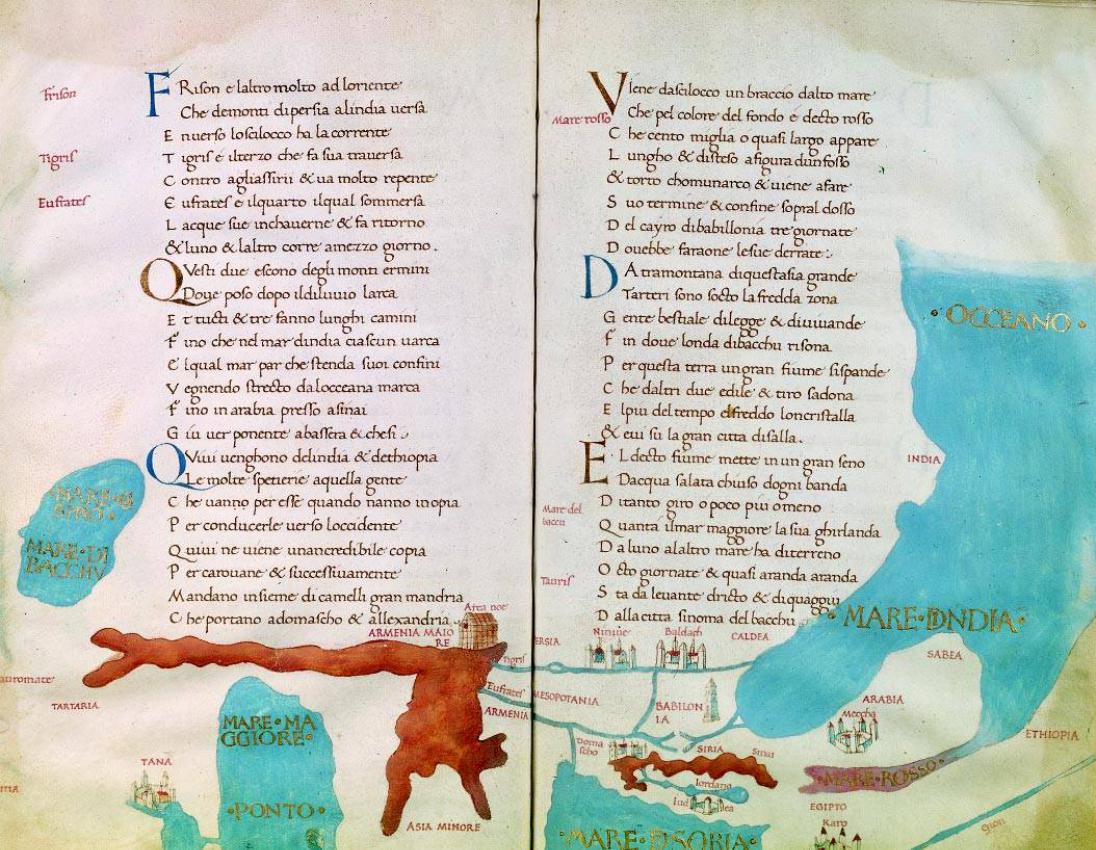 Frison
Tigris
Eufrates
FRison e laltro molto ad loriente
Che demonti di persia alindia uersa
E nuerso loscilocco ha la corrente
T igris é ilterzo che fa sua trauersa
C ontro agliassirii & ua molto repente
E ufrates e ilquarto ilqual sommersa
L acque sue inchauerne & fa ritorno
& luno & laltro corre amezzo giorno.
QVesti due escono degli monti ermini
Doue poso dopo ildiluuio larca
E t tucti & tre fanno lunghi camini
F ino che nel mar dindia ciascun uarca
E lqual mar par che stenda suoi confini
V egnendo strecto da locceana marca
F ino in arabia presso asinai
G iu uer ponente abassera & chesi
QViui uenghono delindia & dethiopia
Le molte spetierie aquella gente
C he uanno per esse quando nanno inopia
P er conducerle uerso loccidente
Q uiui ne uiene unancredibile copia
P er carouane & successiuamente
M andano insieme di camelli gran mandria
C he portano adomascho & allexandria
MARE DI
BACCHV
ARMENIA MAIO
RE
Arca noe
TARTARIA
MARE MA
GGIORE
TANA
PONTO
Tigris
Eufrates
ARMENIA
ASIA MINORE
Mare rosso
Mare del
baccu
Tauris
VIene dascilocco un braccio dalto mare
Che pel colore del fondo é decto rosso
C he cento miglia o quasi largo appare
L ungho & disteso afigura dun fosso
& torto chomunarco & uiene afare
S uo termine & confine sopral dosso
D el cayro dibabillonia tre giornate
D ouebbe faraone lesue derrate
DA tramontana diquestasia grande
Tarteri sono socto la fredda zona
G ente bestiale dilegge & diuiuande
F in doue londa dibacchu risona
P er questa terra un gran fiume sispande
C he daltri due edile & tiro sadona
E lpiu del tempo elfreddo loncristalla
& eui su la gran citta disalla.
EL decto fiume mette in un gran seno
Dacqua salata chiuso dogni banda
D itanto giro o poco piu o meno
Q uanta ilmar maggiore la sua ghirlanda
D a luno alaltro mare ha diterreno
O cto giornate & quasi aranda aranda
S ta da leuante dricto & diquaggiu
D alla citta sinoma del bacchu
OCCEANO
INDIA
MARE DINDIA
Niniue
Baldach
CALDEA
SABEA
MESOPOTANIA
BABILON
IA
ARABIA
Meccha
ETHIOPIA
Doma
scho
SIRIA
Sinai
MARE ROSSO
Iordano
Iud ea
EGIPTO
Karo
Gion
MARE DISORIA